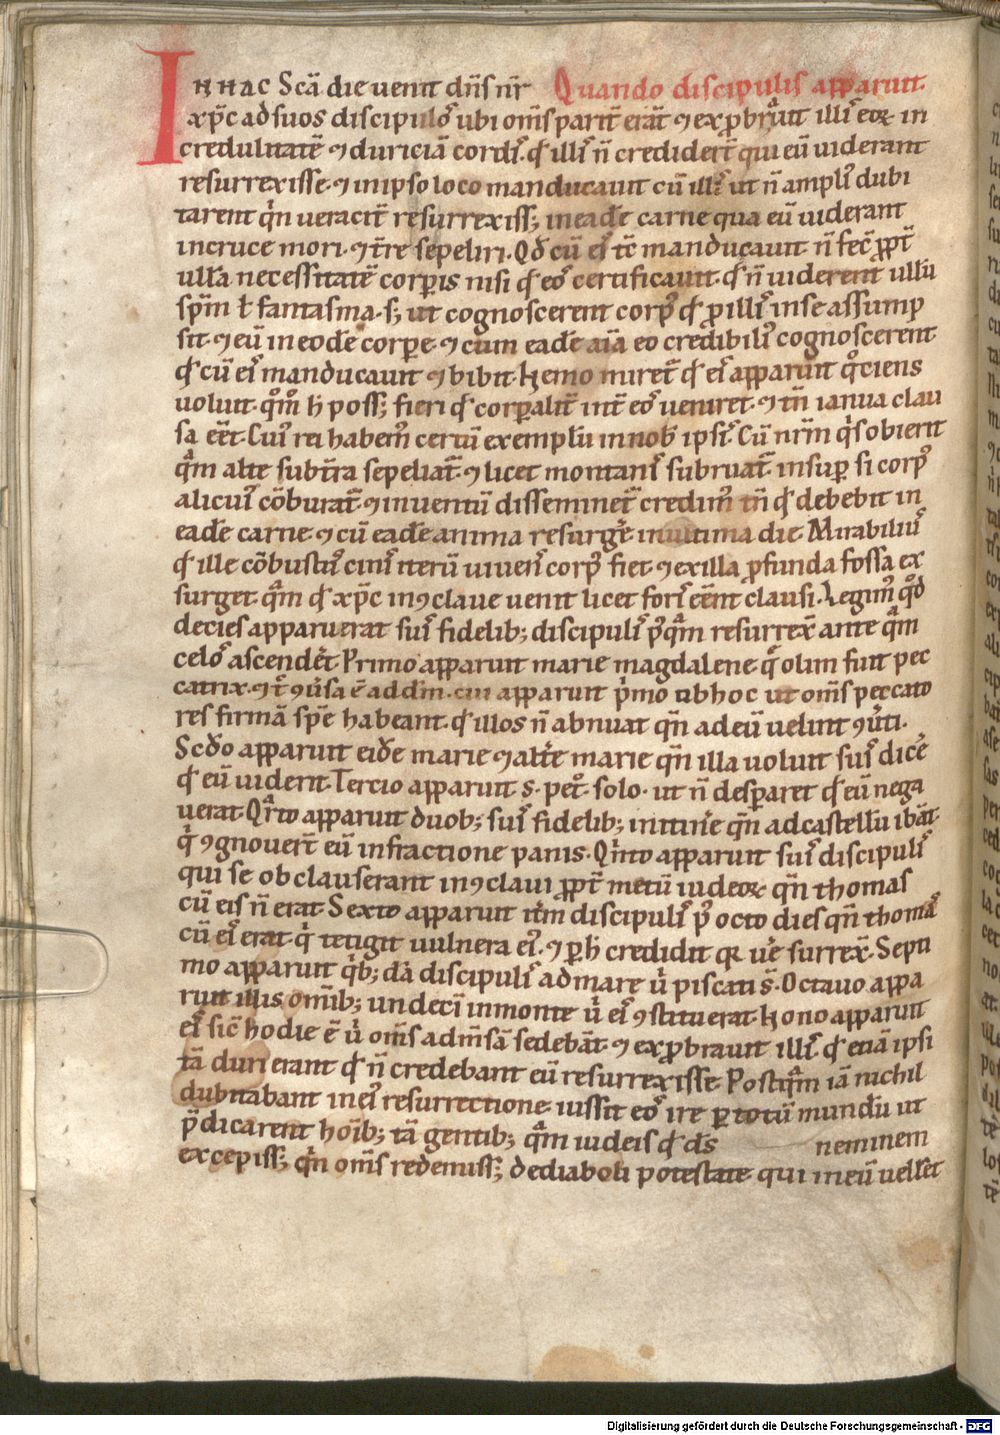 IN HAC Scā die venit dn̄s nr̄ Quando discipulis apparuit.
xp̄c ad suos discipulos ubi om̄s parit̄ erāt ⁊ exprobravit illis eoꝝ in
credulitatē ⁊ duriciā cordis. qd illis n̄ crediderт̄ qui eū viderant
resurrexisse. ⁊ in ipso loco manducavit cū illis ut n̄ amplius dubi
tarent qn̄ veracit̄ resurrexiss; in eadē carne qua eū viderant
in cruce mori. ⁊ t̄re sepeliri. Qd̄ cū eis tc̄ manducavit n̄ fec̄ ꝓpt̄
ullā necessitatē corp̄is nisi qd eos certificavit. qd n̄ viderent ullū
sp̄m ł fantasma. s; ut cognoscerent corp⁹ qd ꝓ illis in se assump
sit. ⁊ eū in eodē corpe. ⁊ cum eadē aīa eo credibili⁹ cognoscerent
qd cū eis manducavit ⁊ bibit. Nemo miret̄ qd eis apparuit qͦciens
voluit. qͦm̊ h̄ poss; fieri qd corꝑalit̄ int̄ eos veniret. ⁊ tn̄ ianua clau
sa eēt. Cui⁹ rei habem⁹ certū exemplū in nob̄ ipsis. Cū nr̄m qͥs obierit
qͣm alte sub t̄ra sepeliat̄. ⁊ licet montanis subruat̄. insuꝑ si corp⁹
alicui⁹ cōburat̄ ⁊ in ventū disseminet̄ credim⁹ tn̄ qd debebit in
eadē carne ⁊ cū eadē anima resurgēr in ultima die. Mirabiliu⁹
qd ille cōbustus cinis iterū vivens corp⁹ fiet ⁊ ex illa ꝓfunda fossa ex
surget. qͣm qd xp̄c in ꝯclave venit licet foris eēnt clausi. Legim⁹ qͦd
decies apparuerat suis fidelib; discipulis p⁹qͣm resurrex̄ ante qͣm
celos ascendet. Primo apparuit marie magdalene q̄ olim fuit pec
catrix. ⁊ t̄ ꝯv̄sa ē ad dn̄m. cui apparuit pͥmo ob hoc ut om̄s peccato
res firmā spē habeant. qd illos n̄ abnuat qn̄ ad eū velint ꝯv̄ti.
Scd̄o apparuit eidē marie ⁊ altē marie qn̄ illa voluit suis dicē
qd eū viderit. Tercio apparuit s. petͦ solo. ut n̄ desꝑaret qd eū nega
verat. Qͣrto apparuit duob; suis fidelib; in itinē qn̄ ad castellū ibāt.
qͥ ꝯgnovert̄ eū in fractione panis. Qͥnto apparuit suis discipulis
qui se obclauserant in ꝯclavi ꝓpt̄ metū iudeoꝝ qn̄ thomas
cū eis n̄ erat. Sexto apparuit itm̄ discipulis p⁹ octo dies qn̄ thomas
cū eis erat. qͥ tetigit vulnera ei⁹. ⁊ ꝑ h̄ credidit qꝛ vē surrex̄. Septi
mo apparuit qͥb;dā discipulis ad mare uͥ piscati s̄. Octavo appa
ruit illis om̄ib; undecī in monte uͥ eis ꝯstituerat. Nono apparuit
eis sic̄ hodie ē uͥ om̄s ad m̄sā sedebāt. ⁊ exprobravit illis qd etiā ipsi
tā duri erant qd n̄ credebant eū resurrexisse. Postqͣm iā nichil
dubitabant in ei⁹ resurrectione iussit eos ire ꝑ totū mundū ut
p̄dicarent hoīb; tā gentib; qͣm iudeis qd ds̄ neminem
excepiss; qn̄ om̄s redemiss; de diaboli potestate qui in eū vellet